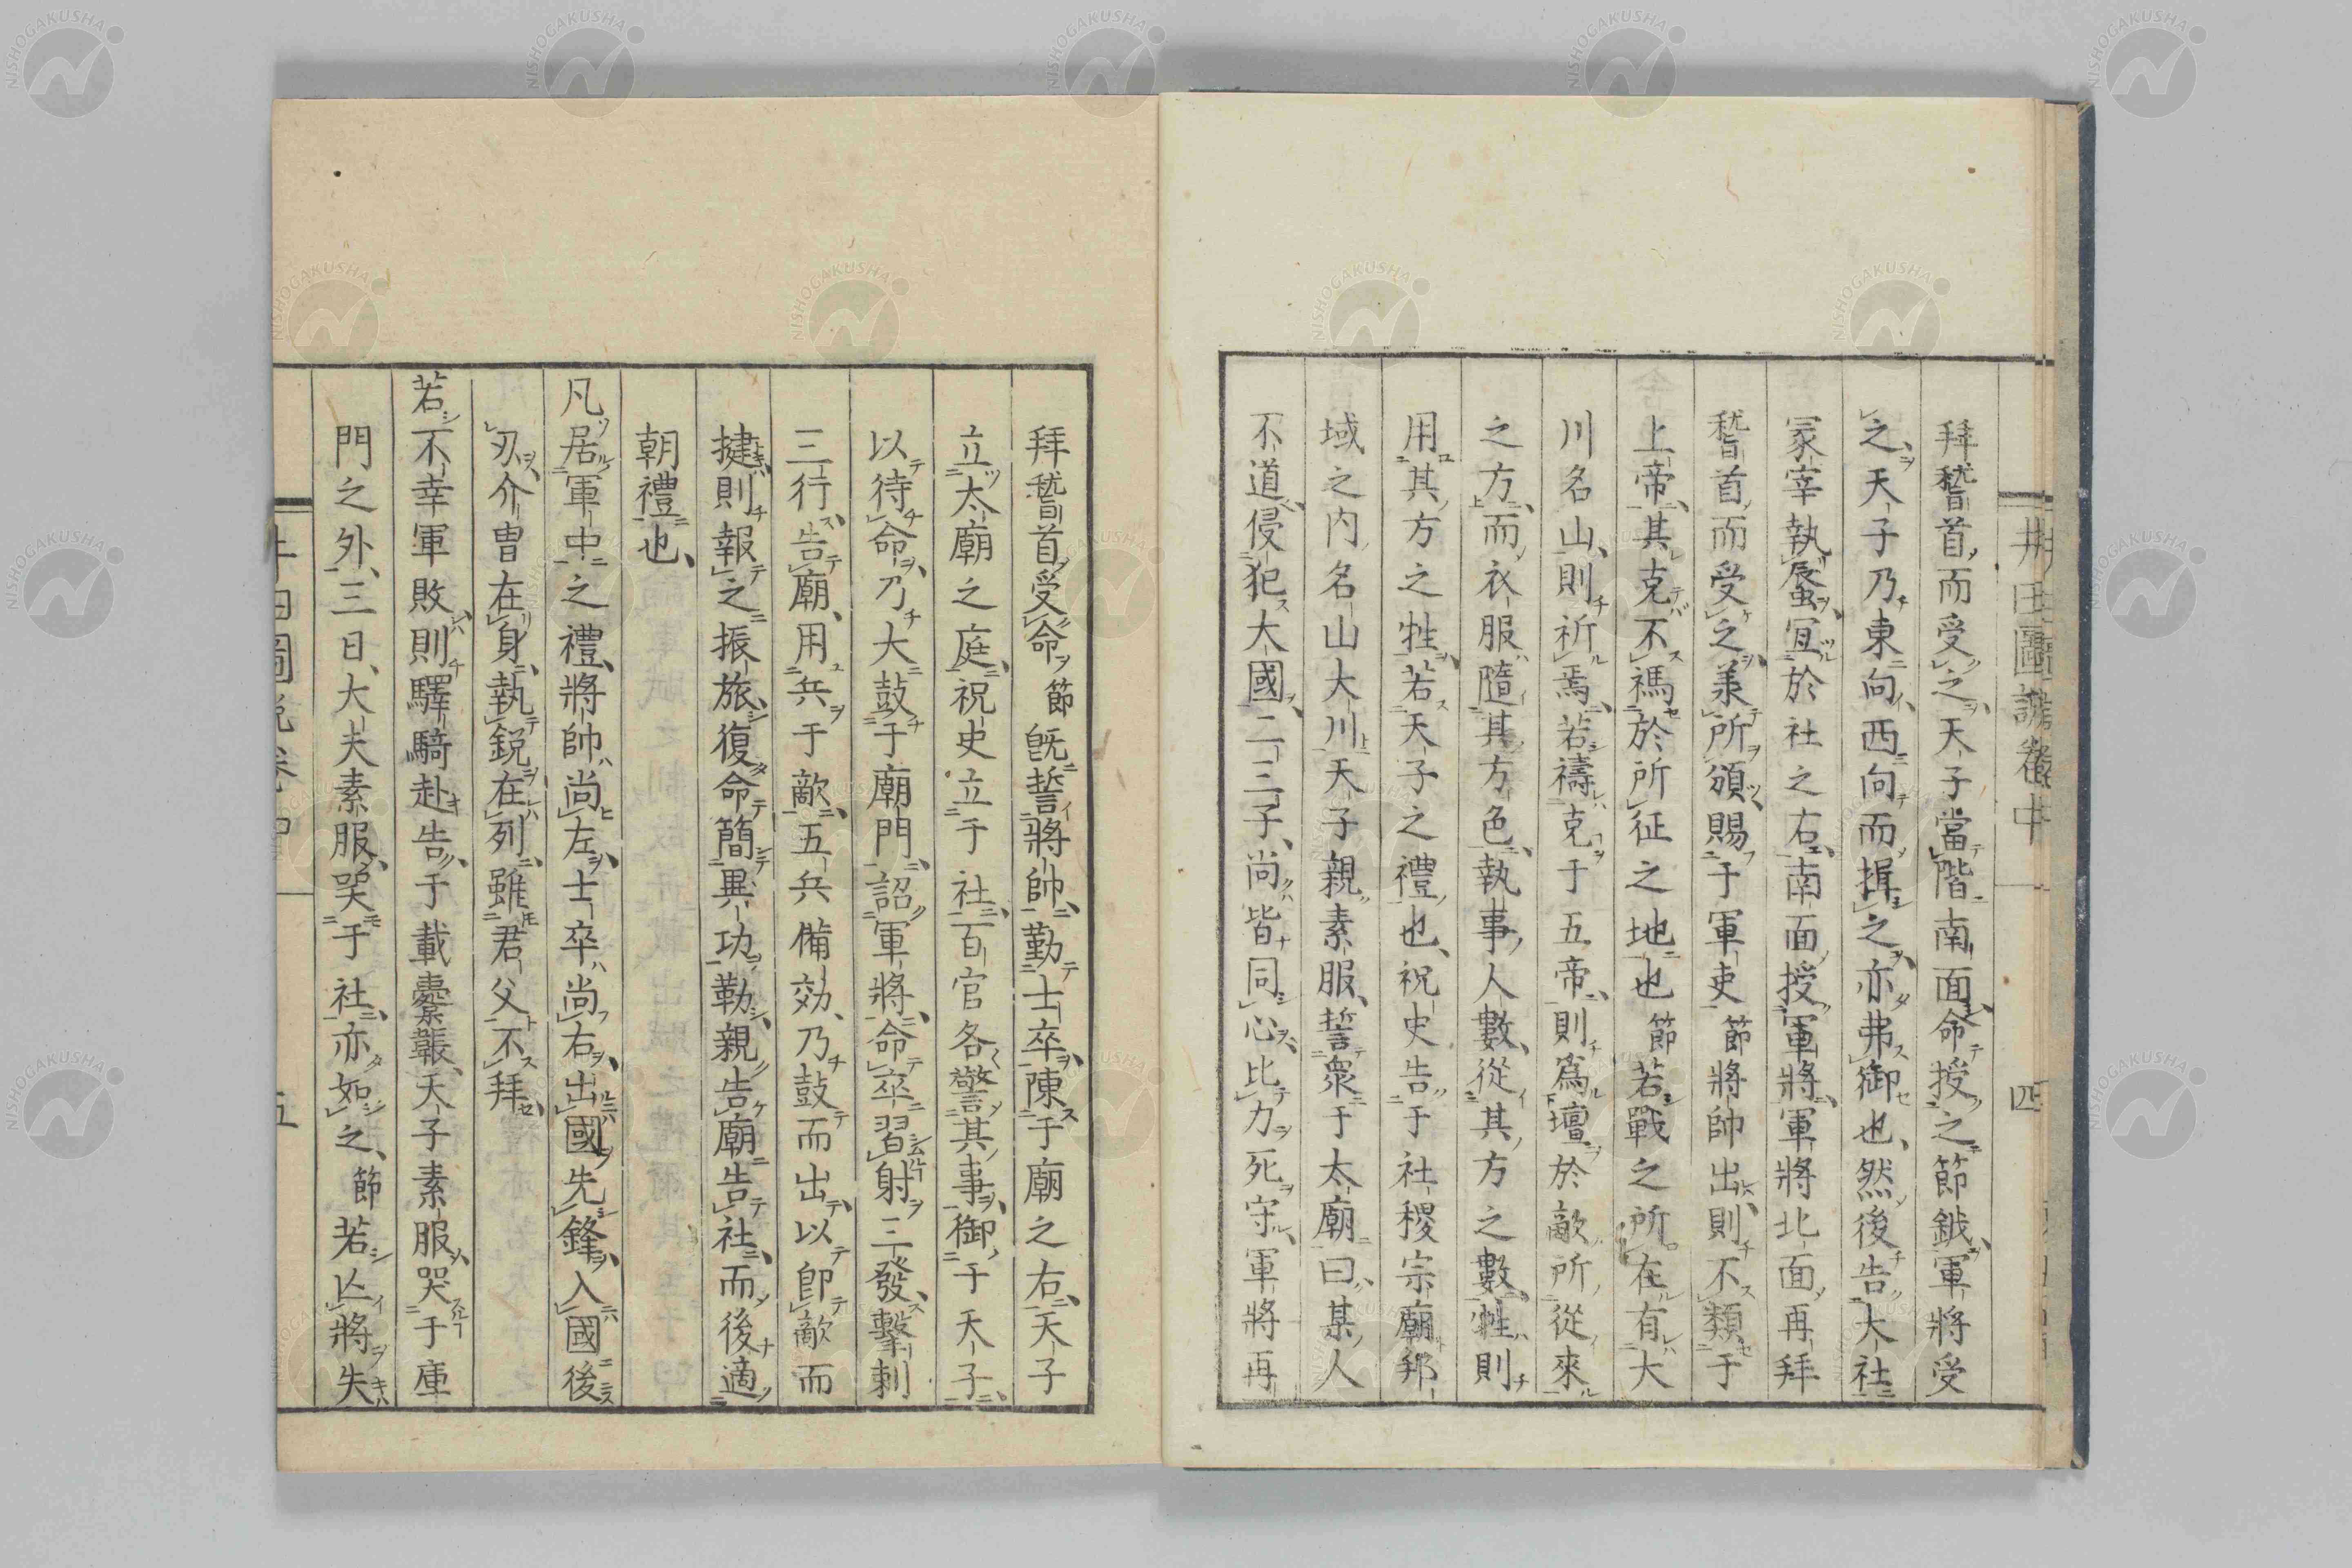 井田圖説卷中
四
拜稽首而受之天子當階南面命授之節鉞軍將受
之天子乃東向西向而揖之亦弗御也然後告大社
冢宰執蜃宜於社之右南面授軍將軍將北面再拜
稽首而受之兼所頒賜于軍吏節將帥出則不類于
上帝其克不禡於所征之地也節若戰之所在有大
川名山則祈焉若禱克于五帝則爲壇於敵所從來
之方而衣服隨其方色執事人數從其方之數牲則
用其方之牲若天子之禮也祝史告于社稷宗廟邦
域之内名山大川天子親素服誓衆于太廟曰某人
不道侵犯大國二三子尚皆同心比力死守軍將再
拜稽首受命節既誓將帥勤士卒陳于廟之右天子
立太廟之庭祝史立于社百官各警其事御于天子
以待命乃大鼓于廟門詔軍將命卒習射三發擊刺
三行告廟用兵于敵五兵備効乃鼓而出以卽敵而
揵則報之振旅復命簡異功勒親告廟告社而後適
朝禮也
凡居軍中之禮將帥尚左士卒尚右出國先鋒入國後
刃介冑在身執銳在列雖君父不拜
若不幸軍敗則驛騎赴告于載櫜韔天子素服哭于庫
門之外三日大夫素服哭于社亦如之節若亾將失
井田圖説卷中
五
NISHOGAKUSHA